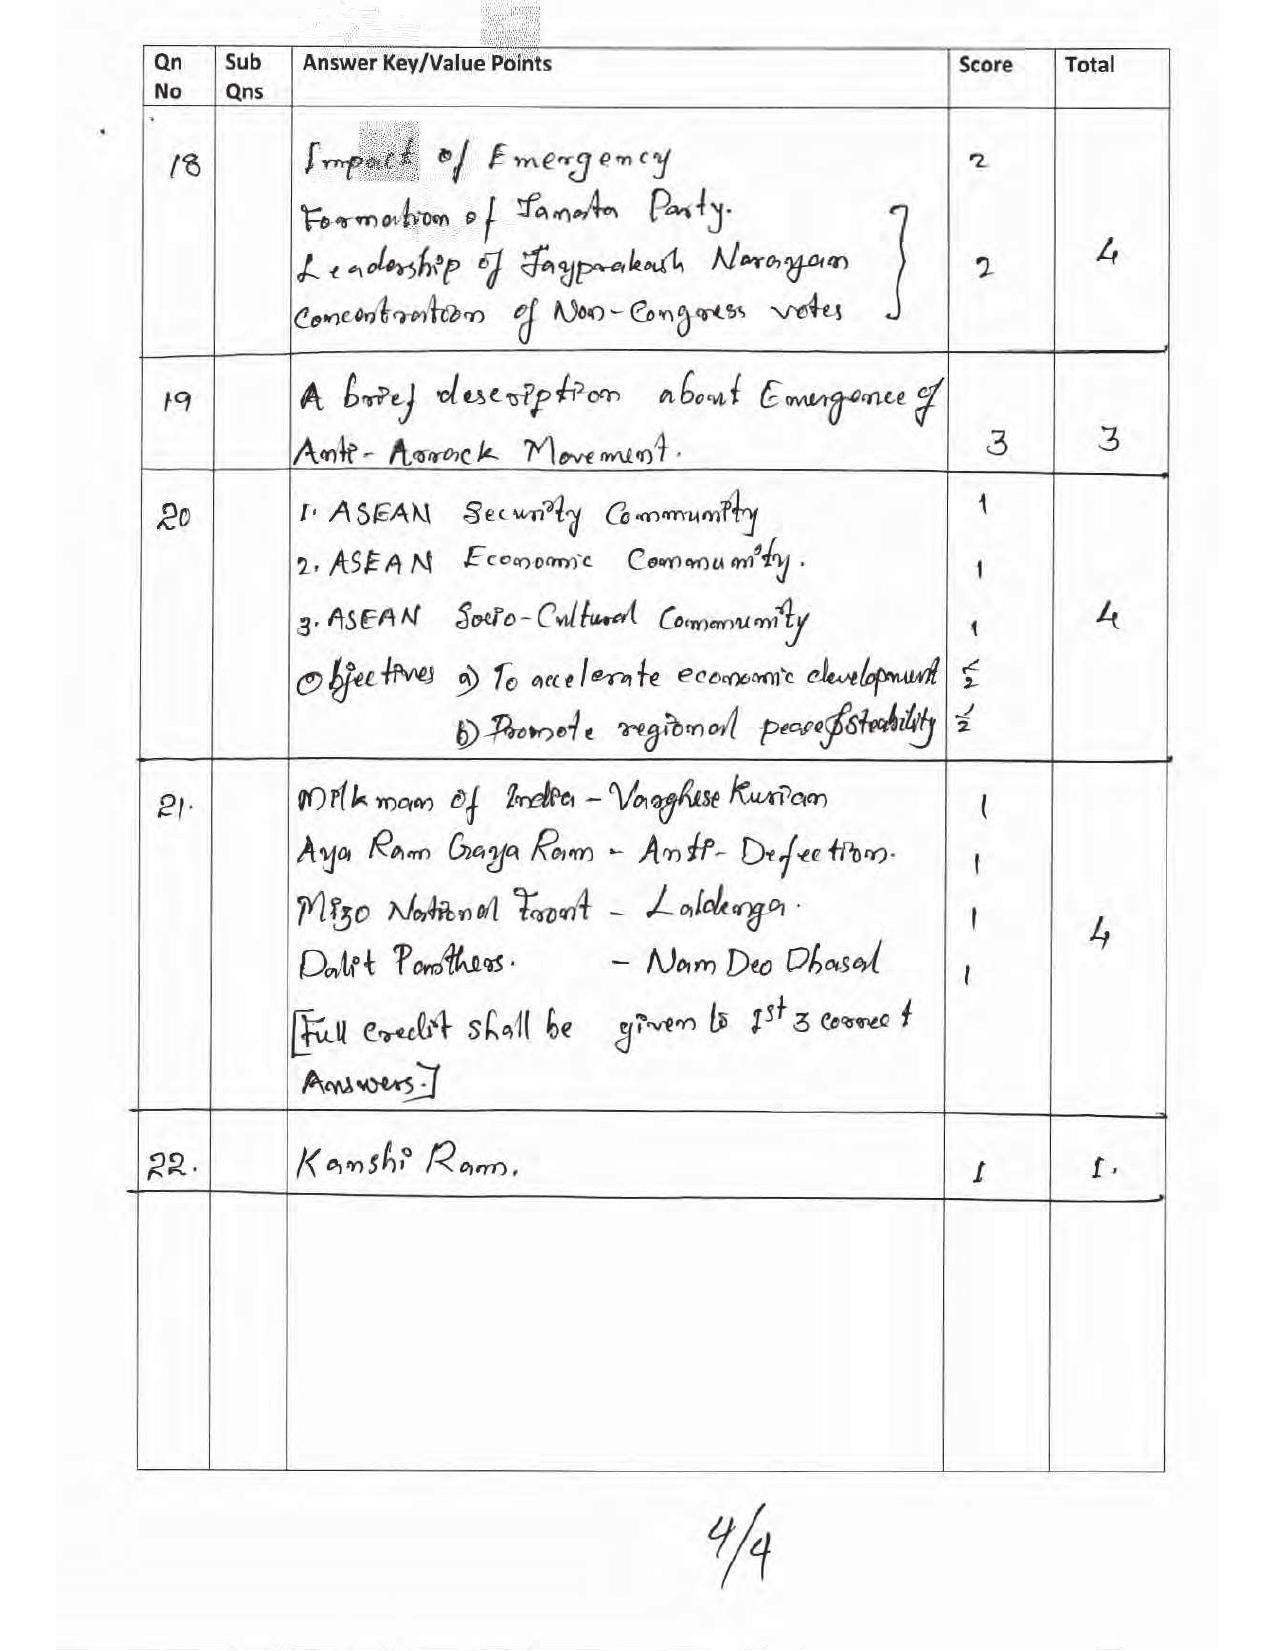 Qn No Sub Qns Answer Key/Value Points Score Total
18 Impact of Emergency 2
Formation of Janata Party.
Leadership of Jayprakash Narayan 2 4
Concentration of Non-Congress votes
19 A brief description about Emergence of
Anti-Arrack Movement. 3 3
20 1. ASEAN Security Community 1
2. ASEAN Economic Community. 1
3. ASEAN Socio-Cultural Community 1 4
Objectives a) To accelerate economic development ½
b) Promote regional peace & steability ½
21. Milkman of India - Varghese Kurian 1
Aya Ram Gaya Ram - Anti-Defection. 1
Mizo National Front - Laldenga. 1 4
Dalit Panthers. - Nam Deo Dhasal 1
[Full credit shall be given to 1st 3 correct
Answers.]
22. Kanshi Ram. 1 1.
4/4